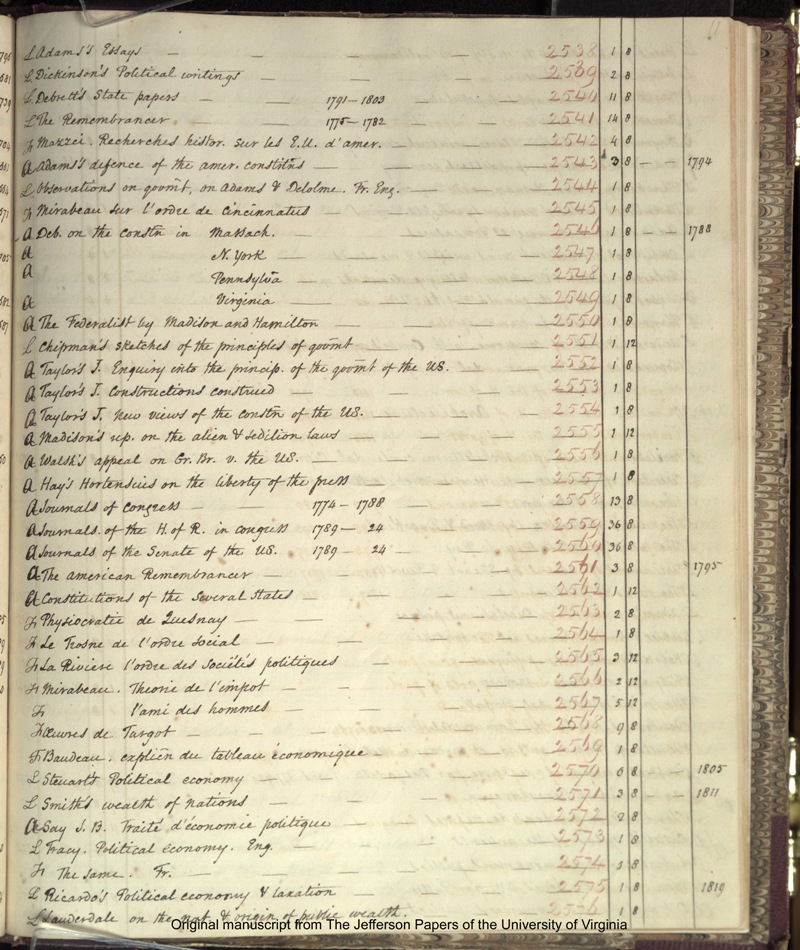 11
L Adams's Essays — — — — — 2538 1 8
L Dickinson's Political writings — — — — 2539 2 8
L Debrett's State papers — — 1791—1803 — — 2540 11 8
L The Remembrancer — — 1775—1782 — — 2541 14 8
Fr Mazzei. Recherches histor. sur les E.U. d'amer. — — 2542 4 8
A Adams's defence of the amer. constitns — — — 2543 3 8 — — 1794
L Observations on govmt, on Adams & Delolme. Fr. Eng. — — 2544 1 8
Fr Mirabeau sur l'ordre de Cincinnatus — — — 2545 1 8
A Deb. on the constn in Massach. — — — 2546 1 8 — — 1788
A N. York — — — 2547 1 8
A Pennsylva — — — 2548 1 8
A Virginia — — — 2549 1 8
A The Federalist by Madison and Hamilton — — — 2550 1 8
L Chipman's Sketches of the principles of govmt — — — 2551 1 12
A Taylor's J. Enquiry into the princip. of the govmt of the US. — 2552 1 8
A Taylor's J. Constructions construed — — — — 2553 1 8
A Taylor's J. New views of the constn of the US. — — — 2554 1 8
A Madison's rep. on the alien & sedition laws — — — 2555 1 12
A Walsh's appeal on Gr. Br. v. the US. — — — 2556 1 8
A Hay's Hortensius on the liberty of the press — — — 2557 1 8
A Journals of Congress — — 1774 — 1788 — — 2558 13 8
A Journals. of the H. of R. in congress 1789 — 24 — — 2559 36 8
A Journals of the Senate of the US. 1789 24 — — 2560 36 8
A The american Remembrancer — — — — 2561 3 8 1795
A Constitutions of the Several States — — — — 2562 1 12
Fr Physiocratie de Quesnay — — — — 2563 2 8
Fr Le Trosne de l'ordre social — — — — 2564 1 8
Fr La Riviere l'ordre des Sociétés politiques — — — 2565 3 12
Fr Mirabeau. Theorie de l'impot — — — — 2566 2 12
Fr l'ami des hommes — — — — 2567 5 12
Fr Œuvres de Turgot — — — — — 2568 9 8
Fr Baudeau. explicn du tableau économique — — — 2569 1 8
L Steuart's Political economy — — — — 2570 6 8 — — 1805
L Smith's wealth of nations — — — — 2571 3 8 — — 1811
A Say J. B. Traité d'économie politique — — — 2572 2 8
L Tracy. Political economy. Eng. — — — — 2573 1 8
Fr The same. Fr. — — — — 2574 1 8
L Ricardo's Political economy & taxation — — — 2575 1 8 1819
L Lauderdale on the nat. & origin of public wealth. — — 2576 1 8
Original manuscript from The Jefferson Papers of the University of Virginia